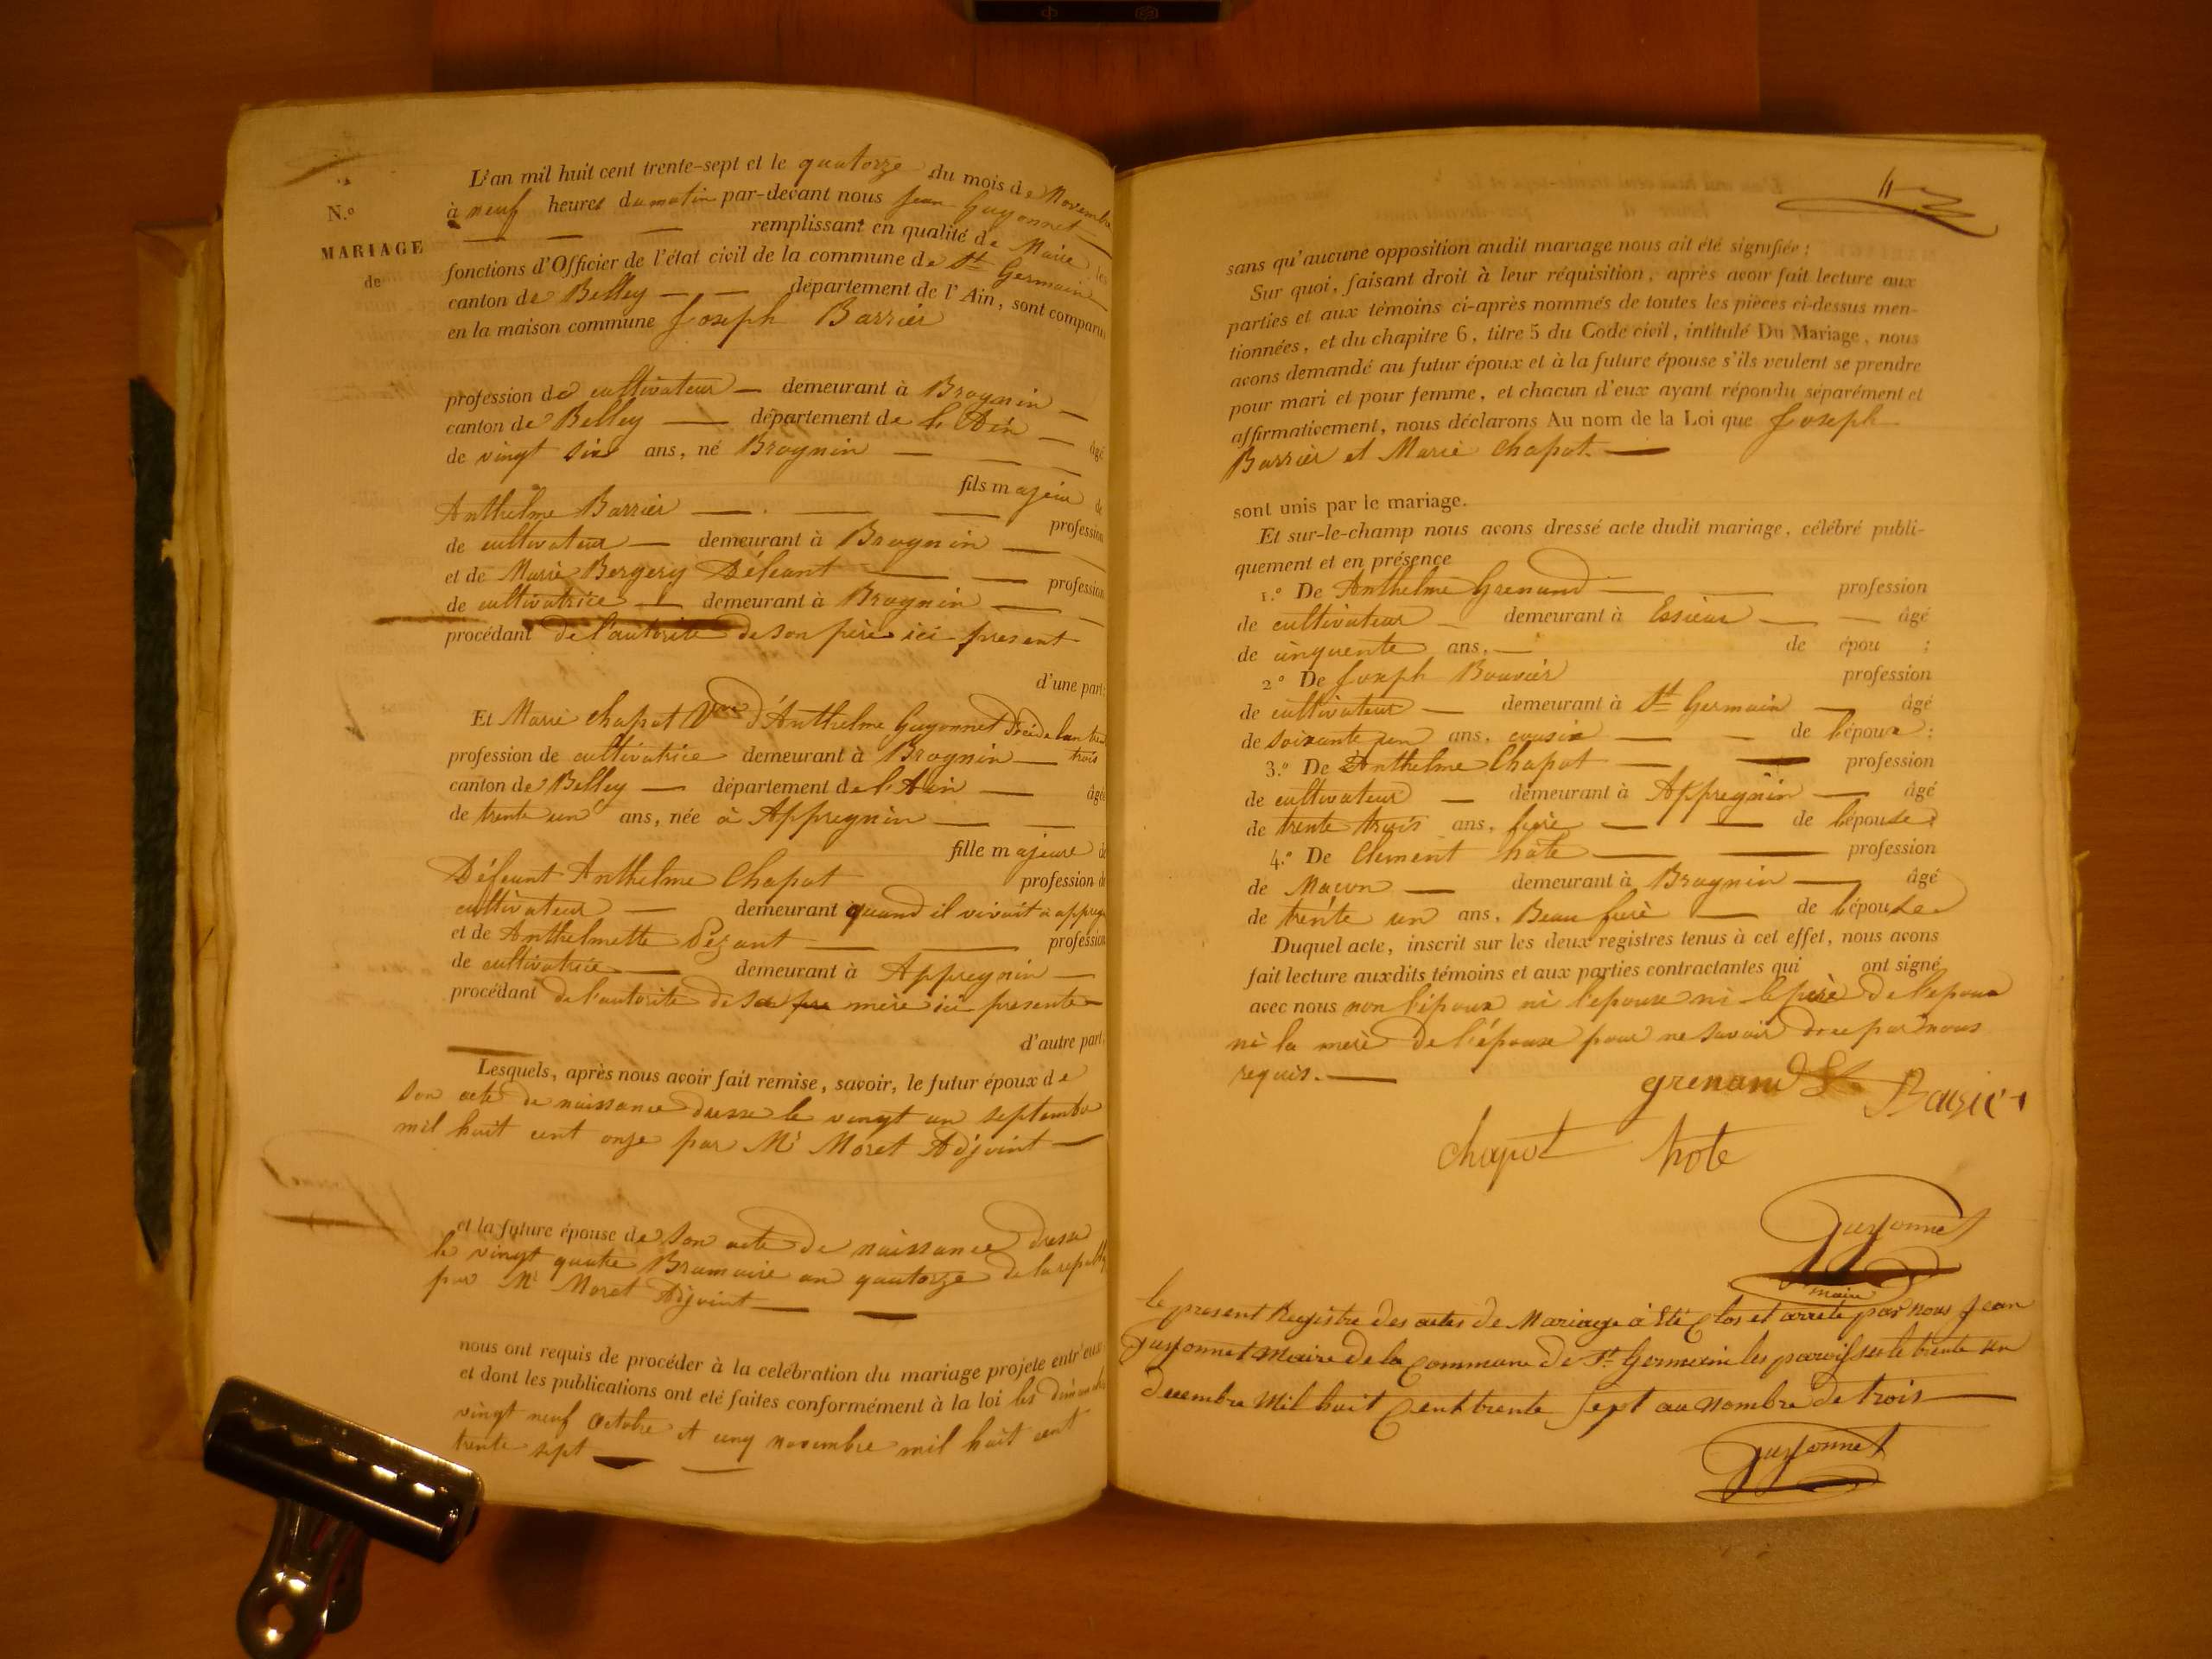 L'an mil huit cent trente-sept et le quatorze du mois de Novembre
à neuf heures du matin par-devant nous Jean Guyonnet
remplissant en qualité de Maire les
fonctions d'Officier de l'état civil de la commune de St Germain
canton de Belley département de l'Ain, sont comparus
en la maison commune Joseph Barrier
N.o
MARIAGE
de
profession de cultivateur demeurant à Brognin
canton de Belley département de l'Ain âgé
de vingt six ans, né Brognin
fils majeur de
Anthelme Barrier profession
de cultivateur demeurant à Brognin
et de Marie Bergery Défunt profession
de cultivatrice demeurant à Brognin
procédant de l'autorité de son père ici present
d'une part;
Et Marie chapot Vve d'Anthelme Guyonnet
trois
profession de cultivatrice demeurant à Brognin
canton de Belley département de l'Ain âgée
de trente un ans, née à Appregnin
fille majeure de
Défeunt Anthelme Chapot profession de
cultivateur demeurant quand il vivoit à appreg
et de Anthelmette profession
de cultivatrice demeurant à Appregnin
procédant de l'autorité de sa mère ici presente
d'autre part.
Lesquels, après nous avoir fait remise, savoir, le futur époux de
son acte de naissance dressé le vingt un septembre
mil huit cent onze par Mr Moret Adjoint
et la future épouse de son acte de naissance dressé
le vingt quatre Brumaire an quatorze de la republ
par Mr Moret Adjoint
nous ont requis de procéder à la celébration du mariage projeté entr'eux
et dont les publications ont été faites conformément à la loi les dimanches
vingt neuf octobre et cinq novembre mil huit cent
trente sept
11
sans qu'aucune opposition audit mariage nous ait été signifiée;
Sur quoi, faisant droit à leur réquisition, après avoir fait lecture aux
parties et aux témoins ci-après nommés de toutes les pièces ci-dessus men-
tionnées, et du chapitre 6, titre 5 du Code civil, intitulé Du Mariage, nous
avons demandé au futur époux et à la future épouse s'ils veulent se prendre
pour mari et pour femme, et chacun d'eux ayant répondu séparément et
affirmativement, nous déclarons Au nom de la Loi que Joseph
Barrier et Marie chapot.
sont unis par le mariage.
Et sur-le-champ nous avons dressé acte dudit mariage, célébré publi-
quement et en présence
1.o De Anthelme Grenand profession
de cultivateur demeurant à Essieux âgé
de cinquente ans, de épou ;
2o De Joseph Bouvier profession
de cultivateur demeurant à St Germain âgé
de soixante un ans, cousin de l'épouse;
3.o De Anthelme Chapot profession
de cultivateur demeurant à Appregnin âgé
de trente trois ans, frère de l'épouse;
4.o De Clement hote profession
de Maçon demeurant à Brognin âgé
de trente un ans, Beau frere de l'épouse
Duquel acte, inscrit sur les deux registres tenus à cet effet, nous avons
fait lecture auxdits témoins et aux parties contractantes qui ont signé
avec nous non l'époux ni l'epouse ni le père de l'epoux
ni la mere de l'épouse pour ne savoir de ce par nous
requis.
grenand
chapot hote
Guyonnet
maire
le present Registre des actes de Mariage à Eté Clos et arreté par nous Jean
Guyonnet Maire de la Commune de St Germain les paroisses le trente un
decembre Mil huit Cent trente Sept au Nombre de trois
Guyonnet